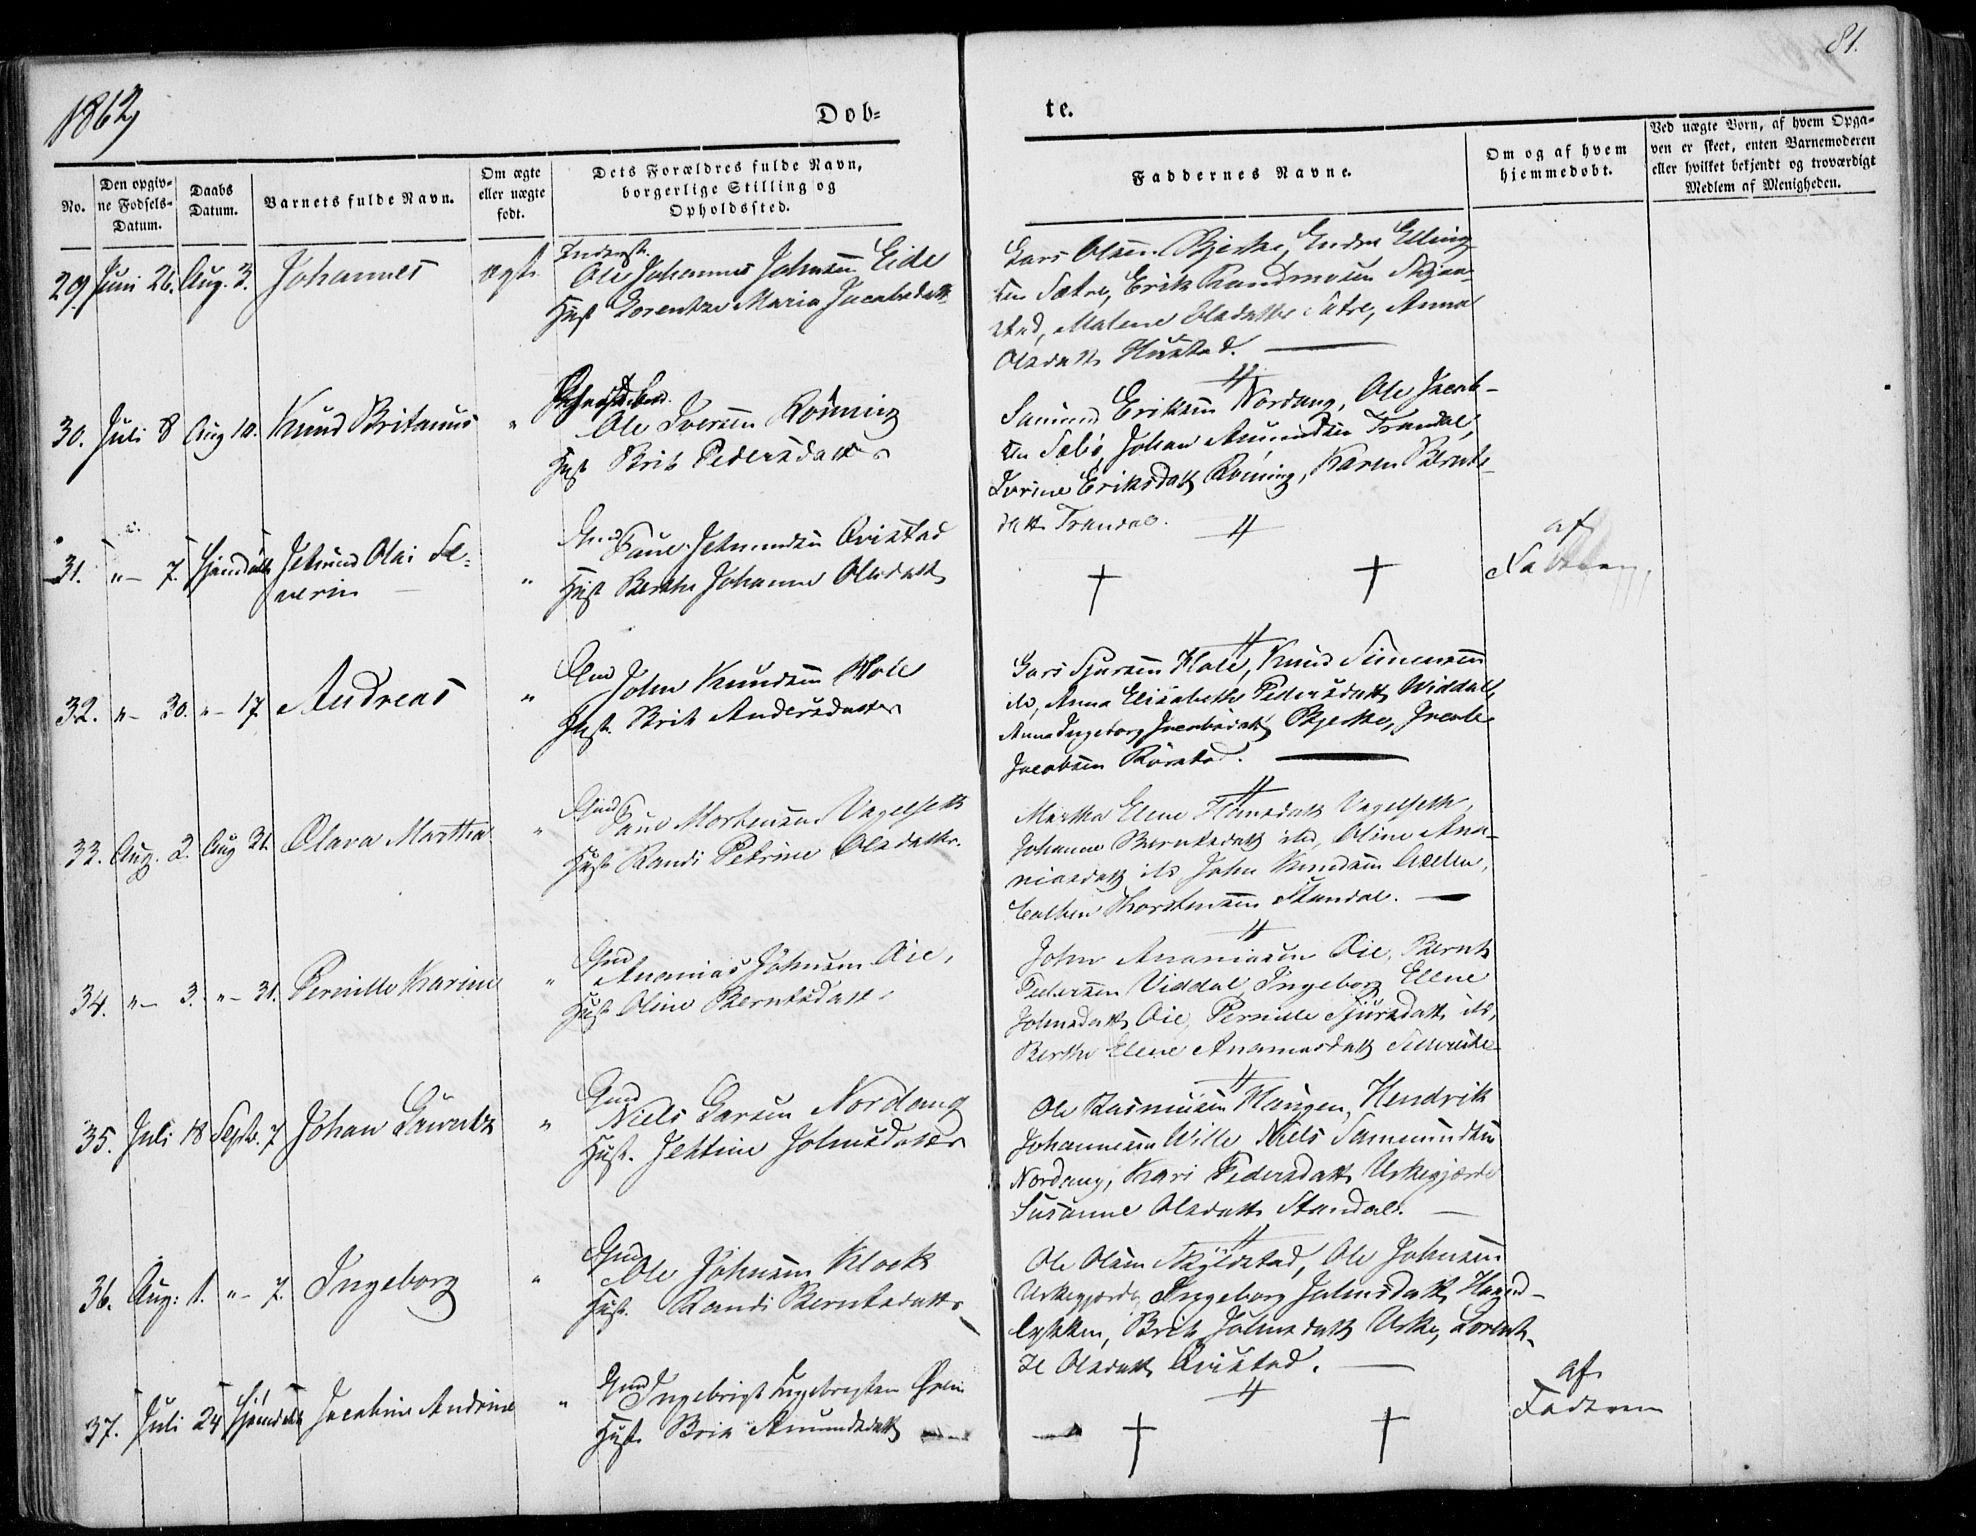 81.
1862
Døb-
te.
No.
Den opgiv-
ne Fødsels-
Datum.
Daabs
Datum.
Barnets fulde Navn.
Om ægte
eller uægte
født.
Dets Forældres fulde Navn,
borgerlige Stilling og
Opholdssted.
Faddernes Navne.
Om og af hvem
hjemmedøbt.
Ved uægte Børn, af hvem Opga-
ven er skeet, enten Barnemoderen
eller hvilket bekjendt og troværdigt
Medlem af Menigheden.
29. Juni 26. Aug. 3. Johannes ægte
Inderst.
Ole Johannes Johnsen Eide
Hust Lorentze Maria Jacobsdatt
Lars Olsen Bjerke, Endre Elling-
sen Sætre, Erik Rasmusen Skjaa-
stad, Malene Olsdatter Sætre, Anna
Olsdatt Hustad.
30. Juli 8 Aug 10. Knud Britanus "
Ole Iversen Rönning
Hust Brit Pedersdatter
Samund Eriksen Nordang, Ole Jacob-
sen Sæbö, Johan Amundsen Trandal,
Iverine Eriksdatt Rönning, Karen Bernts-
datt Trandal.
31. "- 7. Hjemdöbt Jetmund Olai Se-
verin "
Gmd Paul Jetmundsen Qvistad
Hust Berthe Johanne Olsdatt
af
Faderen
32. "- 30. "- 17 Andreas "
Gmd John Knudsen Hole
Hust. Brit Andersdatter
Lars Sjursen Hole, Knud Simensen
ib, Anna Elisabeth Pedersdatt Widdal,
Anna Ingeborg Jacobsdatt Bjerke, Jacob
Jacobsen Rörstad.
33. Aug. 2. Aug 31. Olava Martha "
Gmd Paul Mortensen Vegelseth
Hust Randi Petrine Olsdatter.
Martha Elene Hansdatt Vegelseth,
Johanne Berntsdatt ibd, Oline Ana-
niasdatt ib, John Knudsen
Thorstensen Standal.
34. "- 3. "- 31. Pernille Karine "
Gmd Ananias Johnsen Öie,
Hust Oline Berntsdatt
John Ananiasen Öie, Bernt
Pedersen Viddal, Ingeborg Ellene
Johnsdatt Öie, Pernille Sjursdatt ib,
Berthe Elene Ananiasdatt
35. Juli 18 Septr. 7 Johan Lauritz "
Gmd Niels Larsen Nordang
Hust. Jettine Johnsdatter
Ole Rasmusen Haugen, Hendrik
Johannesen Wille Niels Samundsen
Nordang, Kari Pedersdatt Urkegjærde
Susanne Olsdatt Standal.
36. Aug: 1. "- 7. Ingeborg "
Gmd Ole Johnsen Klok
Hust. Randi Berntsdatt
Ole Olsen Skylstad, Ole Johnsen
Urkegjærde, Ingeborg Johnsdatt Haand-
lykken, Brit Johnsdatt Urke, Lorent-
ze Olsdatt Qvistad.
37. Juli 24 Hjemdöbt Jacobine Andrine "
Gmd Ingebrigt Ingebrigtsen
Hust Brit Amundsdatt
af
Faderen